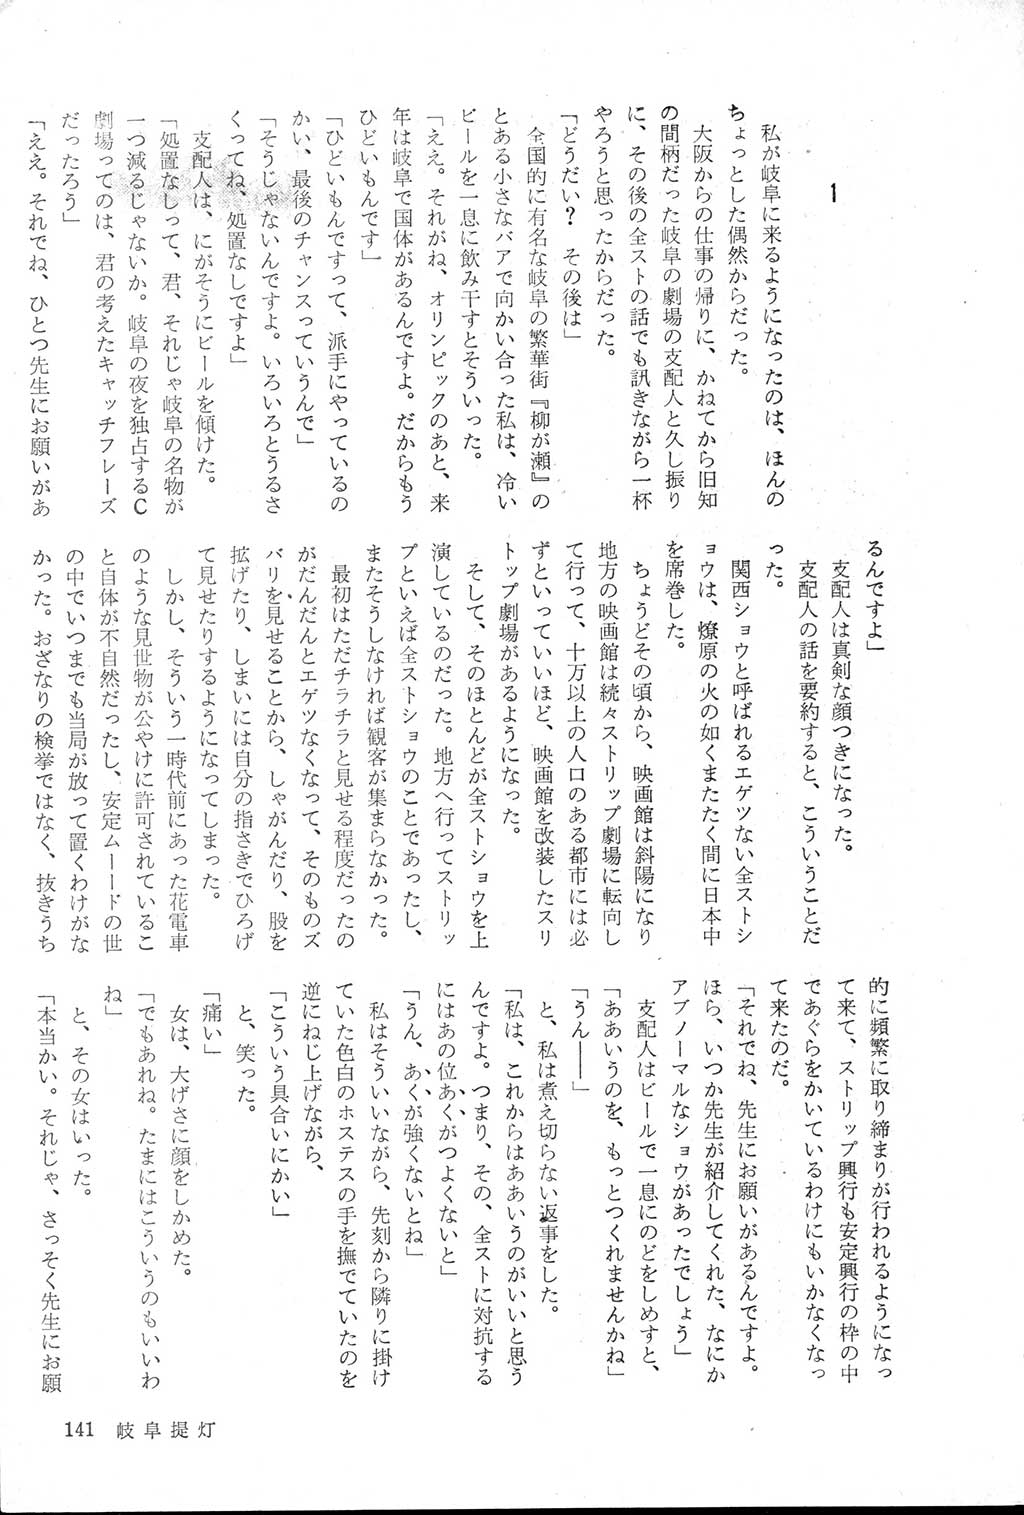 1
私が岐阜に来るようになったのは、ほんの
ちょっとした偶然からだった。
大阪からの仕事の帰りに、かねてから旧知
の間柄だった岐阜の劇場の支配人と久し振り
に、その後の全ストの話でも訊きながら一杯
やろうと思ったからだった。
「どうだい？　その後は」
全国的に有名な岐阜の繁華街『柳が瀬』の
とある小さなバアで向かい合った私は、冷い
ビールを一息に飲み干すとそういった。
「ええ。それがね、オリンピックのあと、来
年は岐阜で国体があるんですよ。だからもう
ひどいもんです」
「ひどいもんですって、派手にやっているの
かい、最後のチャンスっていうんで」
「そうじゃないんですよ。いろいろとうるさ
くってね、処置なしですよ」
支配人は、にがそうにビールを傾けた。
「処置なしって、君、それじゃ岐阜の名物が
一つ減るじゃないか。岐阜の夜を独占するC
劇場ってのは、君の考えたキャッチフレーズ
だったろう」
「ええ。それでね、ひとつ先生にお願いがあ
るんですよ」
支配人は真剣な顔つきになった。
支配人の話を要約すると、こういうことだ
った。
関西ショウと呼ばれるエゲツない全ストシ
ョウは、燎原の火の如くまたたく間に日本中
を席巻した。
ちょうどその頃から、映画館は斜陽になり
地方の映画館は続々ストリップ劇場に転向し
て行って、十万以上の人口のある都市には必
ずといっていいほど、映画館を改装したスリ
トップ劇場があるようになった。
そして、そのほとんどが全ストショウを上
演しているのだった。地方へ行ってストリッ
プといえば全ストショウのことであったし、
またそうしなければ観客が集まらなかった。
最初はただチラチラと見せる程度だったの
がだんだんとエゲツなくなって、そのものズ
バリを見せることから、しゃがんだり、股を
拡げたり、しまいには自分の指さきでひろげ
て見せたりするようになってしまった。
しかし、そういう一時代前にあった花電車
のような見世物が公やけに許可されているこ
と自体が不自然だったし、安定ムードの世
の中でいつまでも当局が放って置くわけがな
かった。おざなりの検挙ではなく、抜きうち
的に頻繁に取り締まりが行われるようになっ
て来て、ストリップ興行も安定興行の枠の中
であぐらをかいているわけにもいかなくなっ
て来たのだ。
「それでね、先生にお願いがあるんですよ。
ほら、いつか先生が紹介してくれた、なにか
アブノーマルなショウがあったでしょう」
支配人はビールで一息にのどをしめすと、
「ああいうのを、もっとつくれませんかね」
「うん――」
と、私は煮え切らない返事をした。
「私は、これからはああいうのがいいと思う
んですよ。つまり、その、全ストに対抗する
にはあの位あくがつよくないと」
「うん、あくが強くないとね」
私はそういいながら、先刻から隣りに掛け
ていた色白のホステスの手を撫でていたのを
逆にねじ上げながら、
「こういう具合いにかい」
と、笑った。
「痛い」
女は、大げさに顔をしかめた。
「でもあれね。たまにはこういうのもいいわ
ね」
と、その女はいった。
「本当かい。それじゃ、さっそく先生にお願
141 岐阜提灯